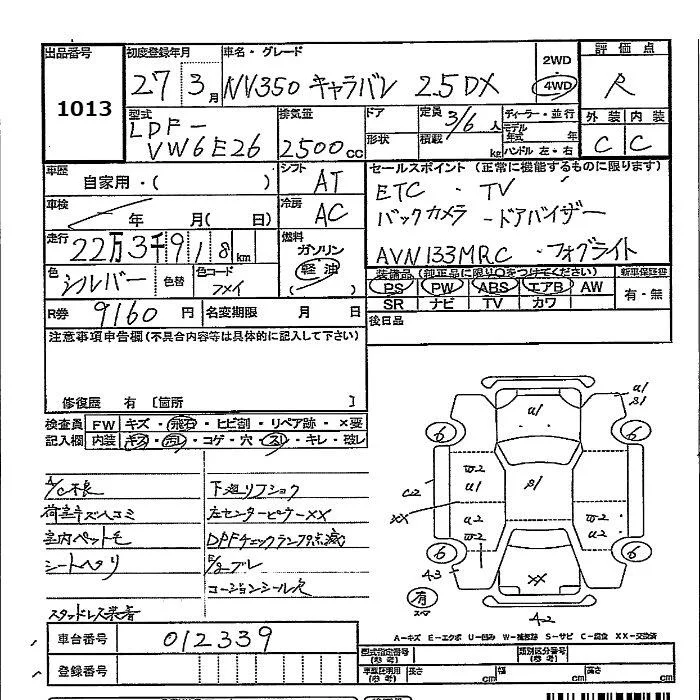 出品番号
1013
初度登録年月
27 3月
車名・グレード
NV350 キャラバン 2.5DX
2WD
4WD
評価点
R
外装 内装
C C
型式
LDF-
VW6E26
排気量
2500cc
ドア
形状
定員 3/6人
積載 kg
ディーラー・並行
モデル年式 年
ハンドル 左・右
車歴
自家用・( )
シフト
AT
車検
年 月( 日)
冷房
AC
走行
22万3千918km
燃料
ガソリン
軽油
色
シルバー
色替
色コード
フメイ
R券
9160円
名変期限 月 日
セールスポイント(正常に機能するものに限ります)
ETC・TV
バックカメラ・ドアバイザー
AVN133MRC・フォグライト
装備品(純正品に限り○をつけてください)
PS PW ABS エアB AW
SR ナビ TV カワ
新車保証書
有・無
後日品
注意事項申告欄(不具合内容等は具体的に記入して下さい)
修復歴 有 〔箇所 〕
検査員記入欄
FW キズ・飛石・ヒビ割・リペア跡・×要
内装 キズ・汚レ・コゲ・穴・スレ・キレ・破レ
A/C不良
荷室キズヘコミ
室内ペットモ
シートヘタリ
スタッドレス装着
下廻リフショク
左センターピラーXX
DPFチェックランプ点滅
E/gブレ
コーションシール欠
U1
S1
A1
6
6
W2
U1
S1
C2
XX
U2
W2
U2
W2
6
6
A3
XX
有
スペア
A2
A-キズ E-エクボ U-凹み W-補修跡 S-サビ C-腐食 XX-交換済
車台番号
012339
登録番号
型式指定番号
(参考)
類別区分番号
(参考)
長さ cm
幅 cm
高さ cm